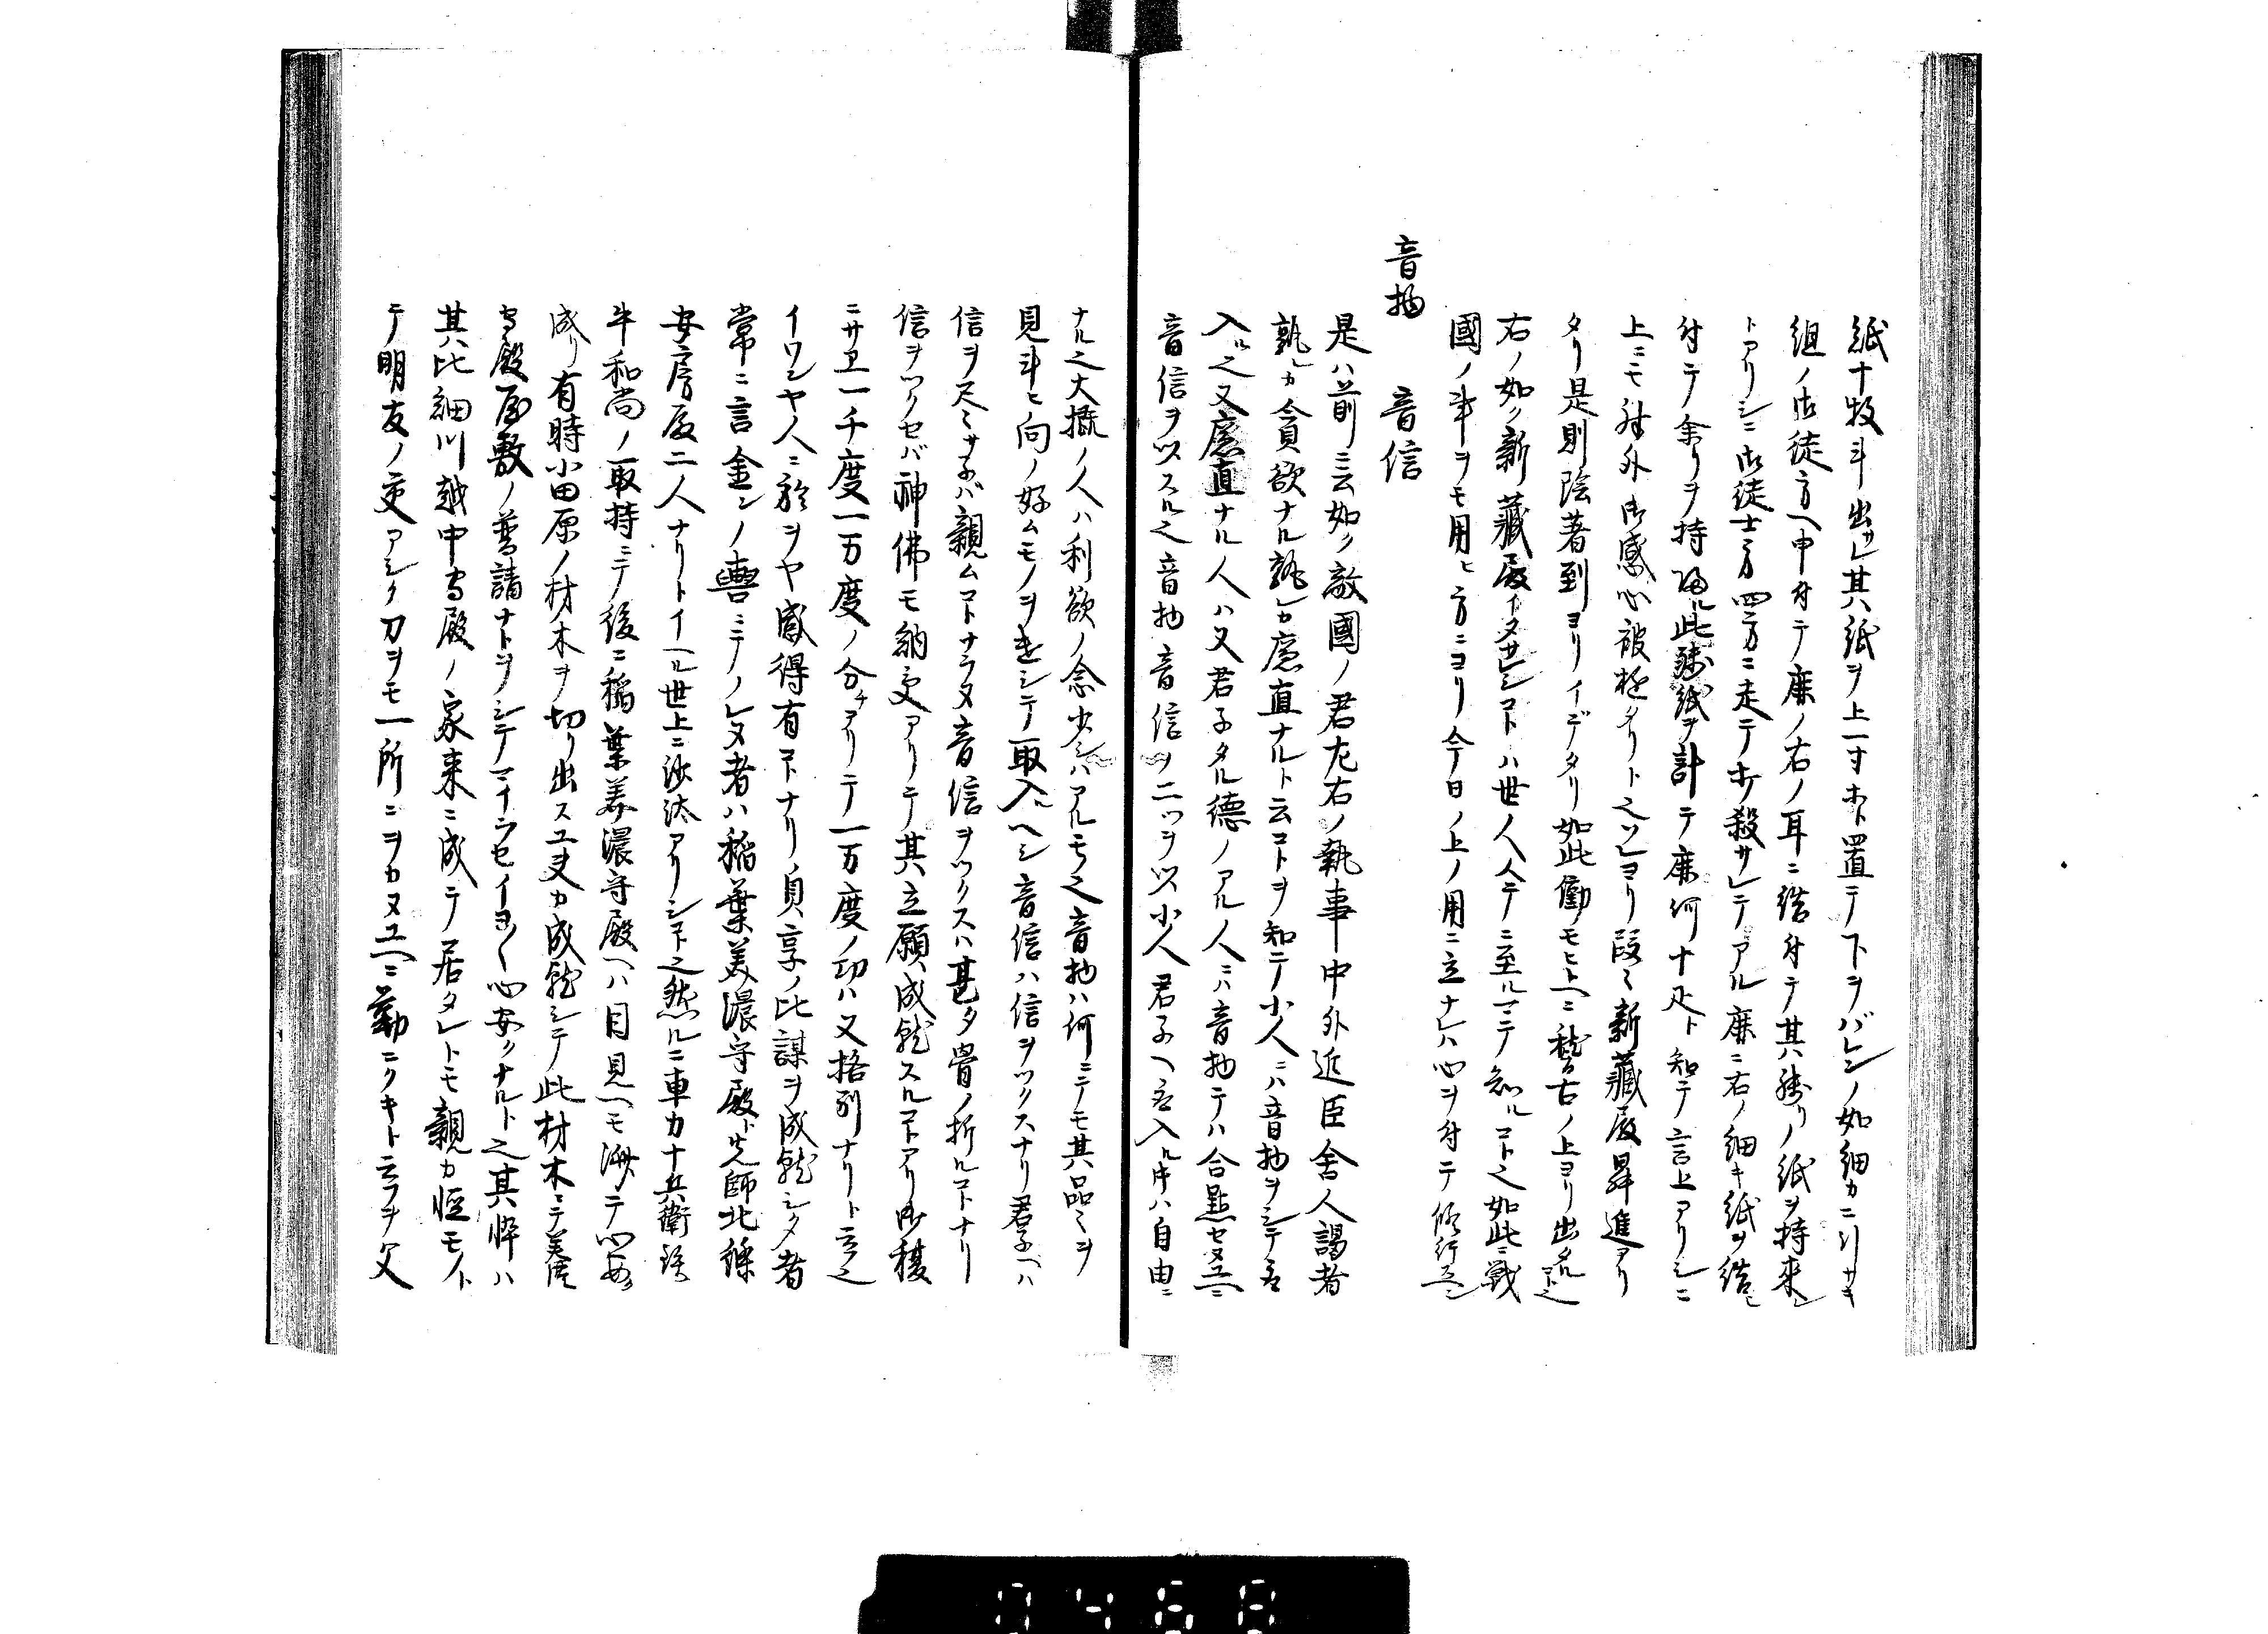 紙十枚斗出サレ其ノ紙ヲ上一寸ホト置テ下ヲバレンノ如細カニ引サキ
組ノ御徒方ヘ申付テ鹿ノ右ノ耳ニ結付テ其ノ残リノ紙ヲ持来レ
トアリシニ御徒士ミナ四方ニ走テ打殺サレテアル鹿ニ右ノ細キ紙ヲ結ヒ
付テ余リヲ持帰ル此残紙ヲ計テ鹿何十疋ト知テ言上アリシニ
上ニモ殊外御感心被遊タリト之ソレヨリ段々新藏殿昇進アリ
タリ是則陰著到ヨリイデタリ如此働モヒ上ヘニ稽古ノ上ヨリ出タルコト之
右ノ如ク新藏殿イタサレシコトハ世ノ人人テニ至ルマテ知ルコト之如此ニ戰
國ノ事ヲモ用ヒ方ニヨリ今日ノ上ノ用ニ立ナレハ心ヲ付テ修行スヘシ
音物 音信
是ハ前ニ云如ク敵國ノ君左右ノ執事中外近臣舍人謁者
孰レカ貪欲ナル孰レカ廉直ナルト云コトヲ知テ小人ニハ音物ヲシテ云
入ル之又廉直ナル人ハ又君子タル德ノアル人ニハ音物テハ合點セヌユヘニ
音信ヲ以スル之音物音信ノ二ツヲ以小人君子ヘ云入ル時ハ自由ニ
ナル之大概ノ人ハ利欲ノ念少シハアルモノ之音物ハ何ニテモ其品々ヲ
見斗ヒ向ノ好ムモノヲ進シテ取入ルヘシ音信ハ信ヲツクスナリ君子ヘハ
信ヲ尽ミサネバ親ムコトナラヌ音信ヲツクスハ甚タ骨ノ折ルコトナリ
信ヲツクセバ神佛モ納受アリテ其立願成就スルコトアリ御秡
ニサヱ一千度一万度ノ分チアリテ一万度ノ功ハ又格別ナリト云之
イワンヤ人ニ於ヲヤ感得有コトナリ貞享ノ比謀ヲ成就シタ者
常ニ言金シノ轡ニテノレヌ者ハ稲葉美濃守殿ト先師北條
安房殿二人ナリトイヘル世上ニ沙汰アリシコト之然ルニ車力十兵衛鉄
牛和尚ノ取持ニテ後ニ稲葉美濃守殿ヘハ目見ヘモ済テ心安ク
成リ有時小田原ノ材木ヲ切リ出ス工夫カ成就シテ此材木ニテ美濃
守殿屋敷ノ普請ナトヲシテマイラセイヨ〱心安クナルト之其悴ハ
其比細川越中守殿ノ家来ニ成テ居タレトモ親カ恒モノト
テ明友ノ交アシク刀ヲモ一所ニヲカヌユヘニ勤ニクキト云ヲ父